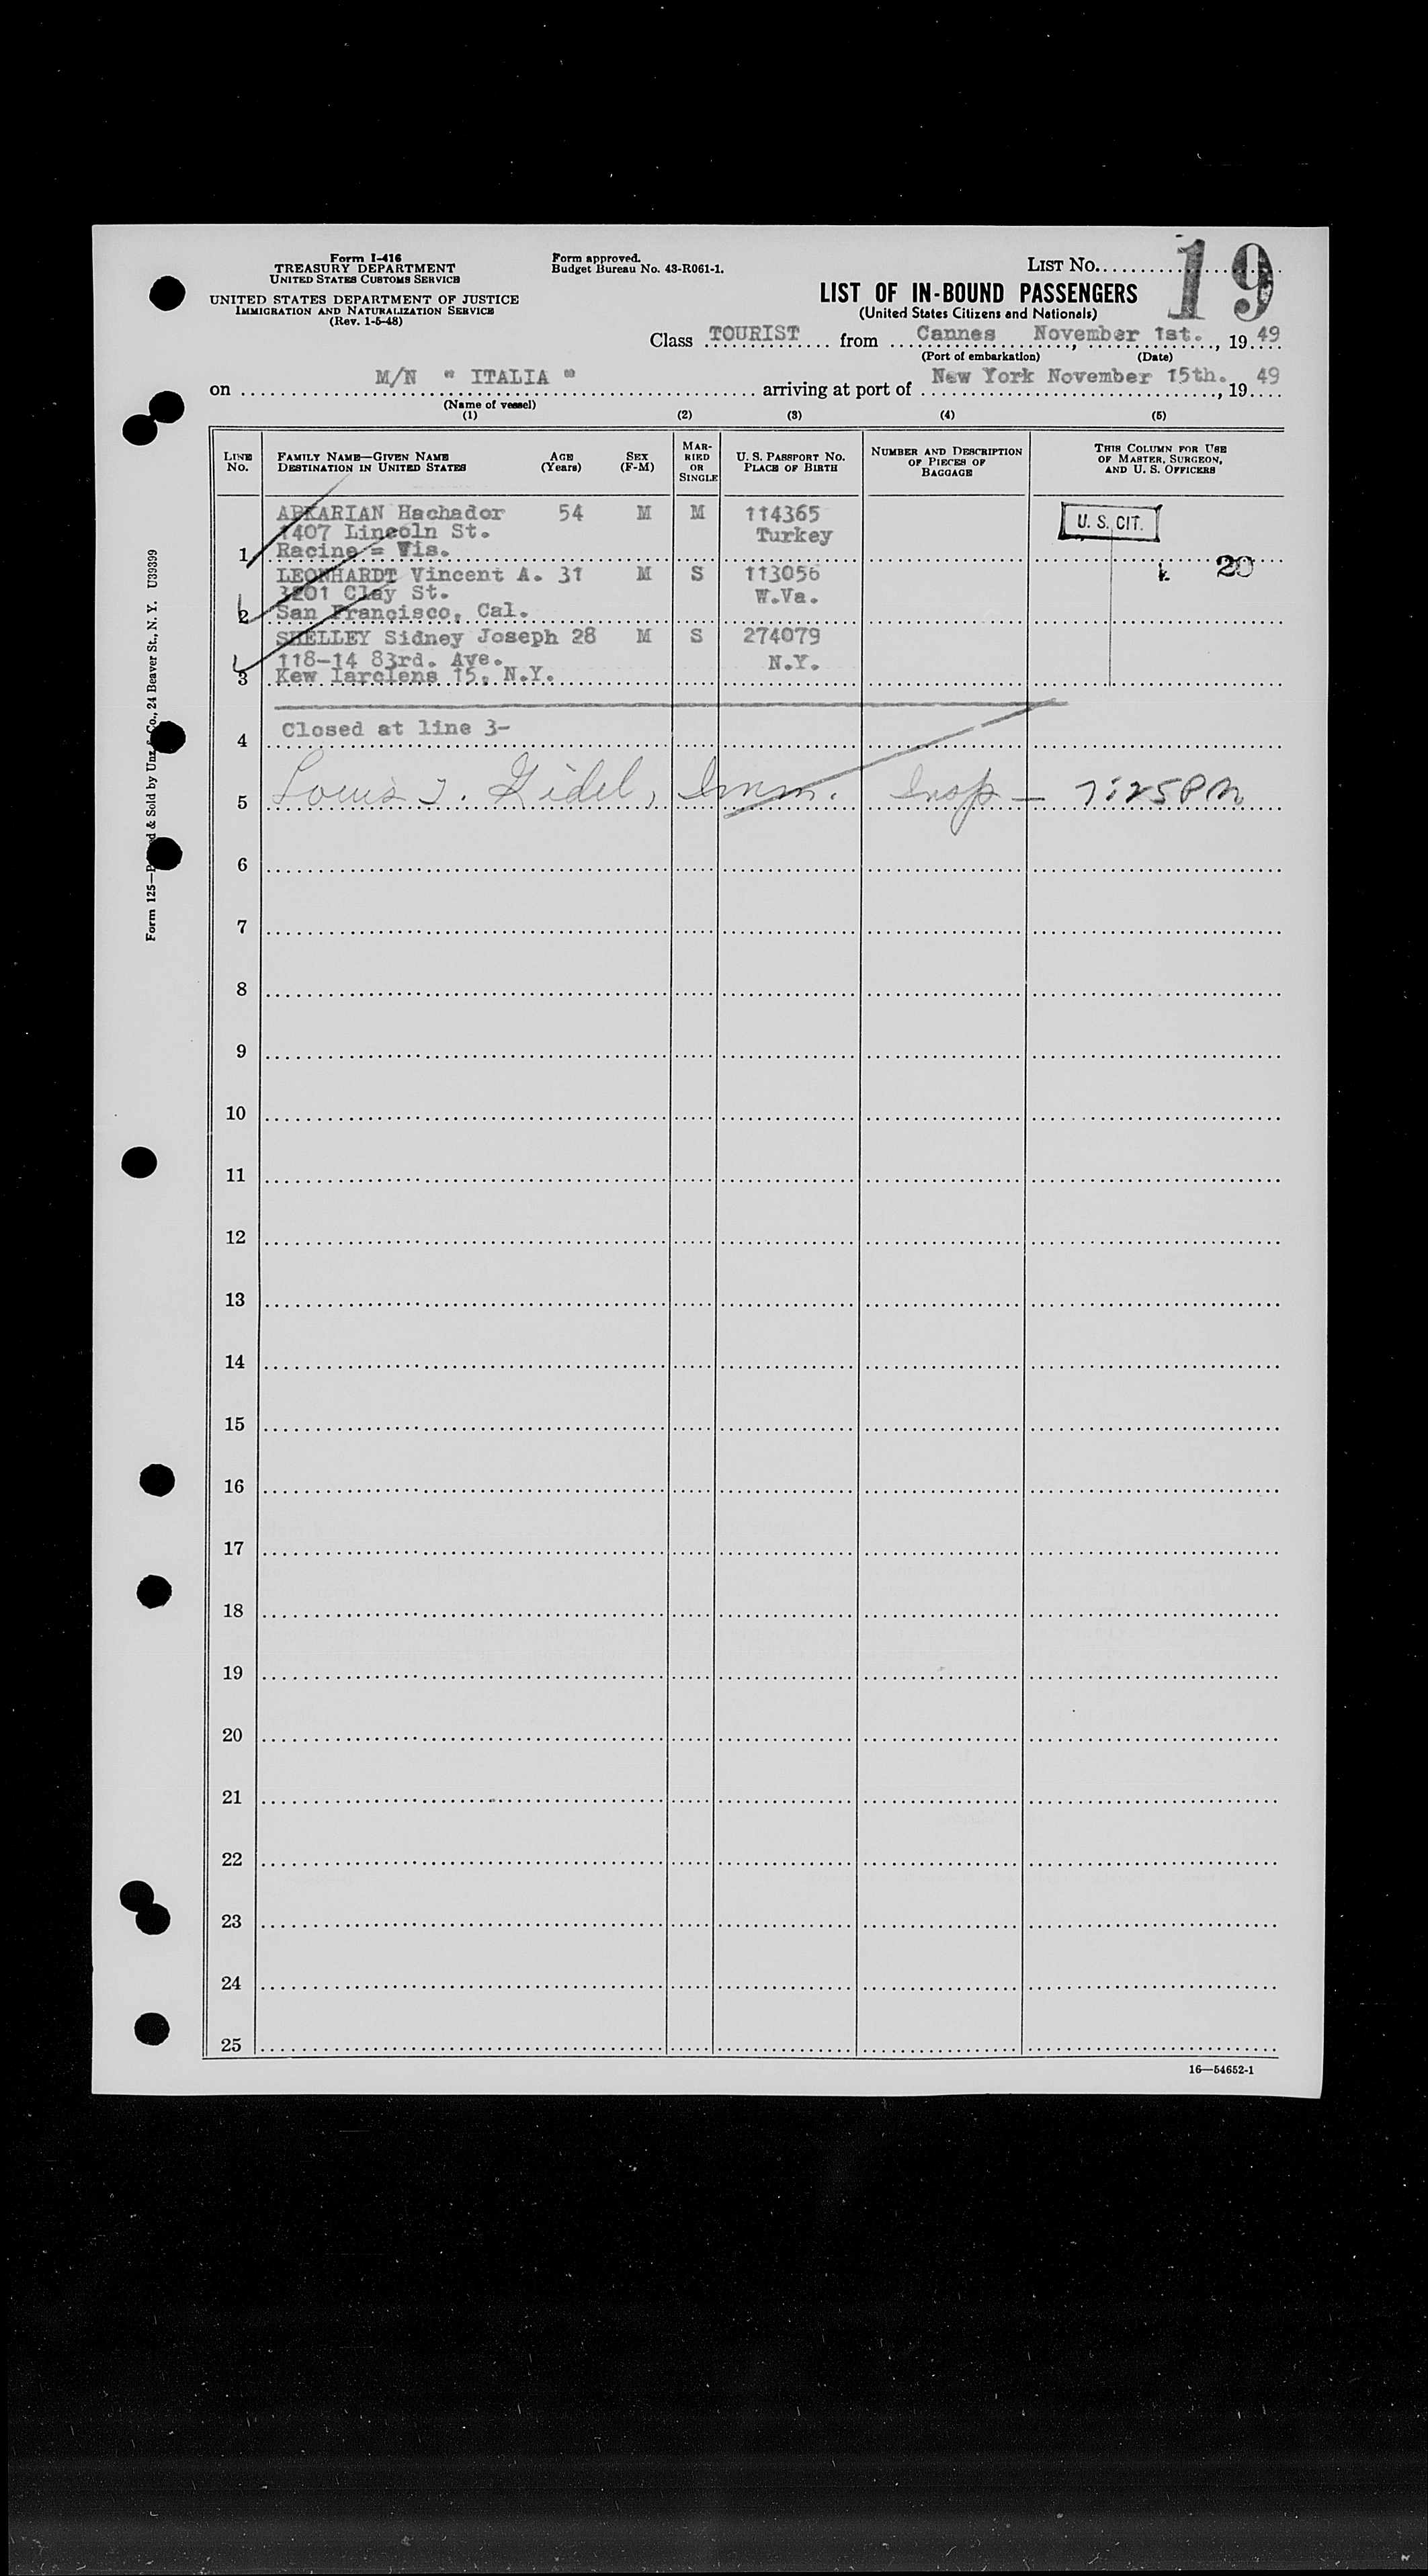 Form I-416
TREASURY DEPARTMENT
UNITED STATES CUSTOMS SERVICE
UNITED STATES DEPARTMENT OF JUSTICE
IMMIGRATION AND NATURALIZATION SERVICE
(Rev. 1-5-48)
Form approved.
Budget Bureau No. 43-R061-1.
LIST No. 19
LIST OF IN-BOUND PASSENGERS
(United States Citizens and Nationals)
Class TOURIST from Cannes, November 1st., 19 49
(Port of embarkation) (Date)
on M/N " ITALIA " arriving at port of New York November 15th., 19 49
(Name of vessel)
(1) (2) (3) (4) (5)
LINE No. FAMILY NAME—GIVEN NAME DESTINATION IN UNITED STATES AGE (Years) SEX (F-M) MARRIED OR SINGLE U. S. PASSPORT No. PLACE OF BIRTH NUMBER AND DESCRIPTION OF PIECES OF BAGGAGE THIS COLUMN FOR USE OF MASTER, SURGEON, AND U. S. OFFICERS
ABKARIAN Hachador 54 M M 114365 U. S. CIT.
1407 Lincoln St. Turkey
1 Racine = Wis.
20
LEONHARDT Vincent A. 31 M S 113056
3201 Clay St. W.Va.
2 San Francisco, Cal.
SHELLEY Sidney Joseph 28 M S 274079
118-14 83rd. Ave. N.Y.
3 Kew Iarclens 15, N.Y.
4 Closed at line 3-
5 Louis J. Gidel, Imm. Insp — 7:25 PM
6
7
8
9
10
11
12
13
14
15
16
17
18
19
20
21
22
23
24
25
16—54652-1
Form 125— & Sold by Unz & Co., 24 Beaver St., N. Y. U39399